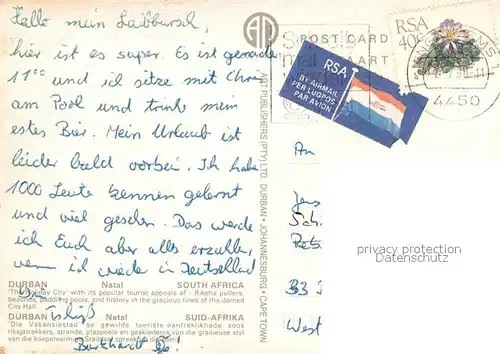 Hallo mein Saibbursch,
hier ist es super. Es ist gerade
11⁰⁰ und ich sitze mit Chris
am Pool und trinke mein
erstes Bier. Mein Urlaub ist
leider bald vorbei. Ich habe
1000 Leute kennen gelernt
und viel gesehen. Das werde
ich Euch aber alles erzählen,
wenn ich wieder in Deutschland
bin.
Burkhardt
DURBAN Natal SOUTH AFRICA
'The Holiday City' with its popular tourist appeals of - Riksha pullers,
beaches, paddling pools, and history in the gracious lines of the domed
City Hall
DURBAN Natal SUID-AFRIKA
'Die Vakansiestad' se gewilde toeriste aantreklikhede soos
riksjatrekkers, strande, plaspoele en geskiedenis van die grasieuse styl
van die koepelvormige Stadsaal
ART PUBLISHERS (PTY) LTD. DURBAN • JOHANNESBURG • CAPE TOWN
POST CARD
RSA
BY AIRMAIL
PER LUGPOS
PAR AVION
RSA
40c
4450
An
West
privacy protection
Datenschutz